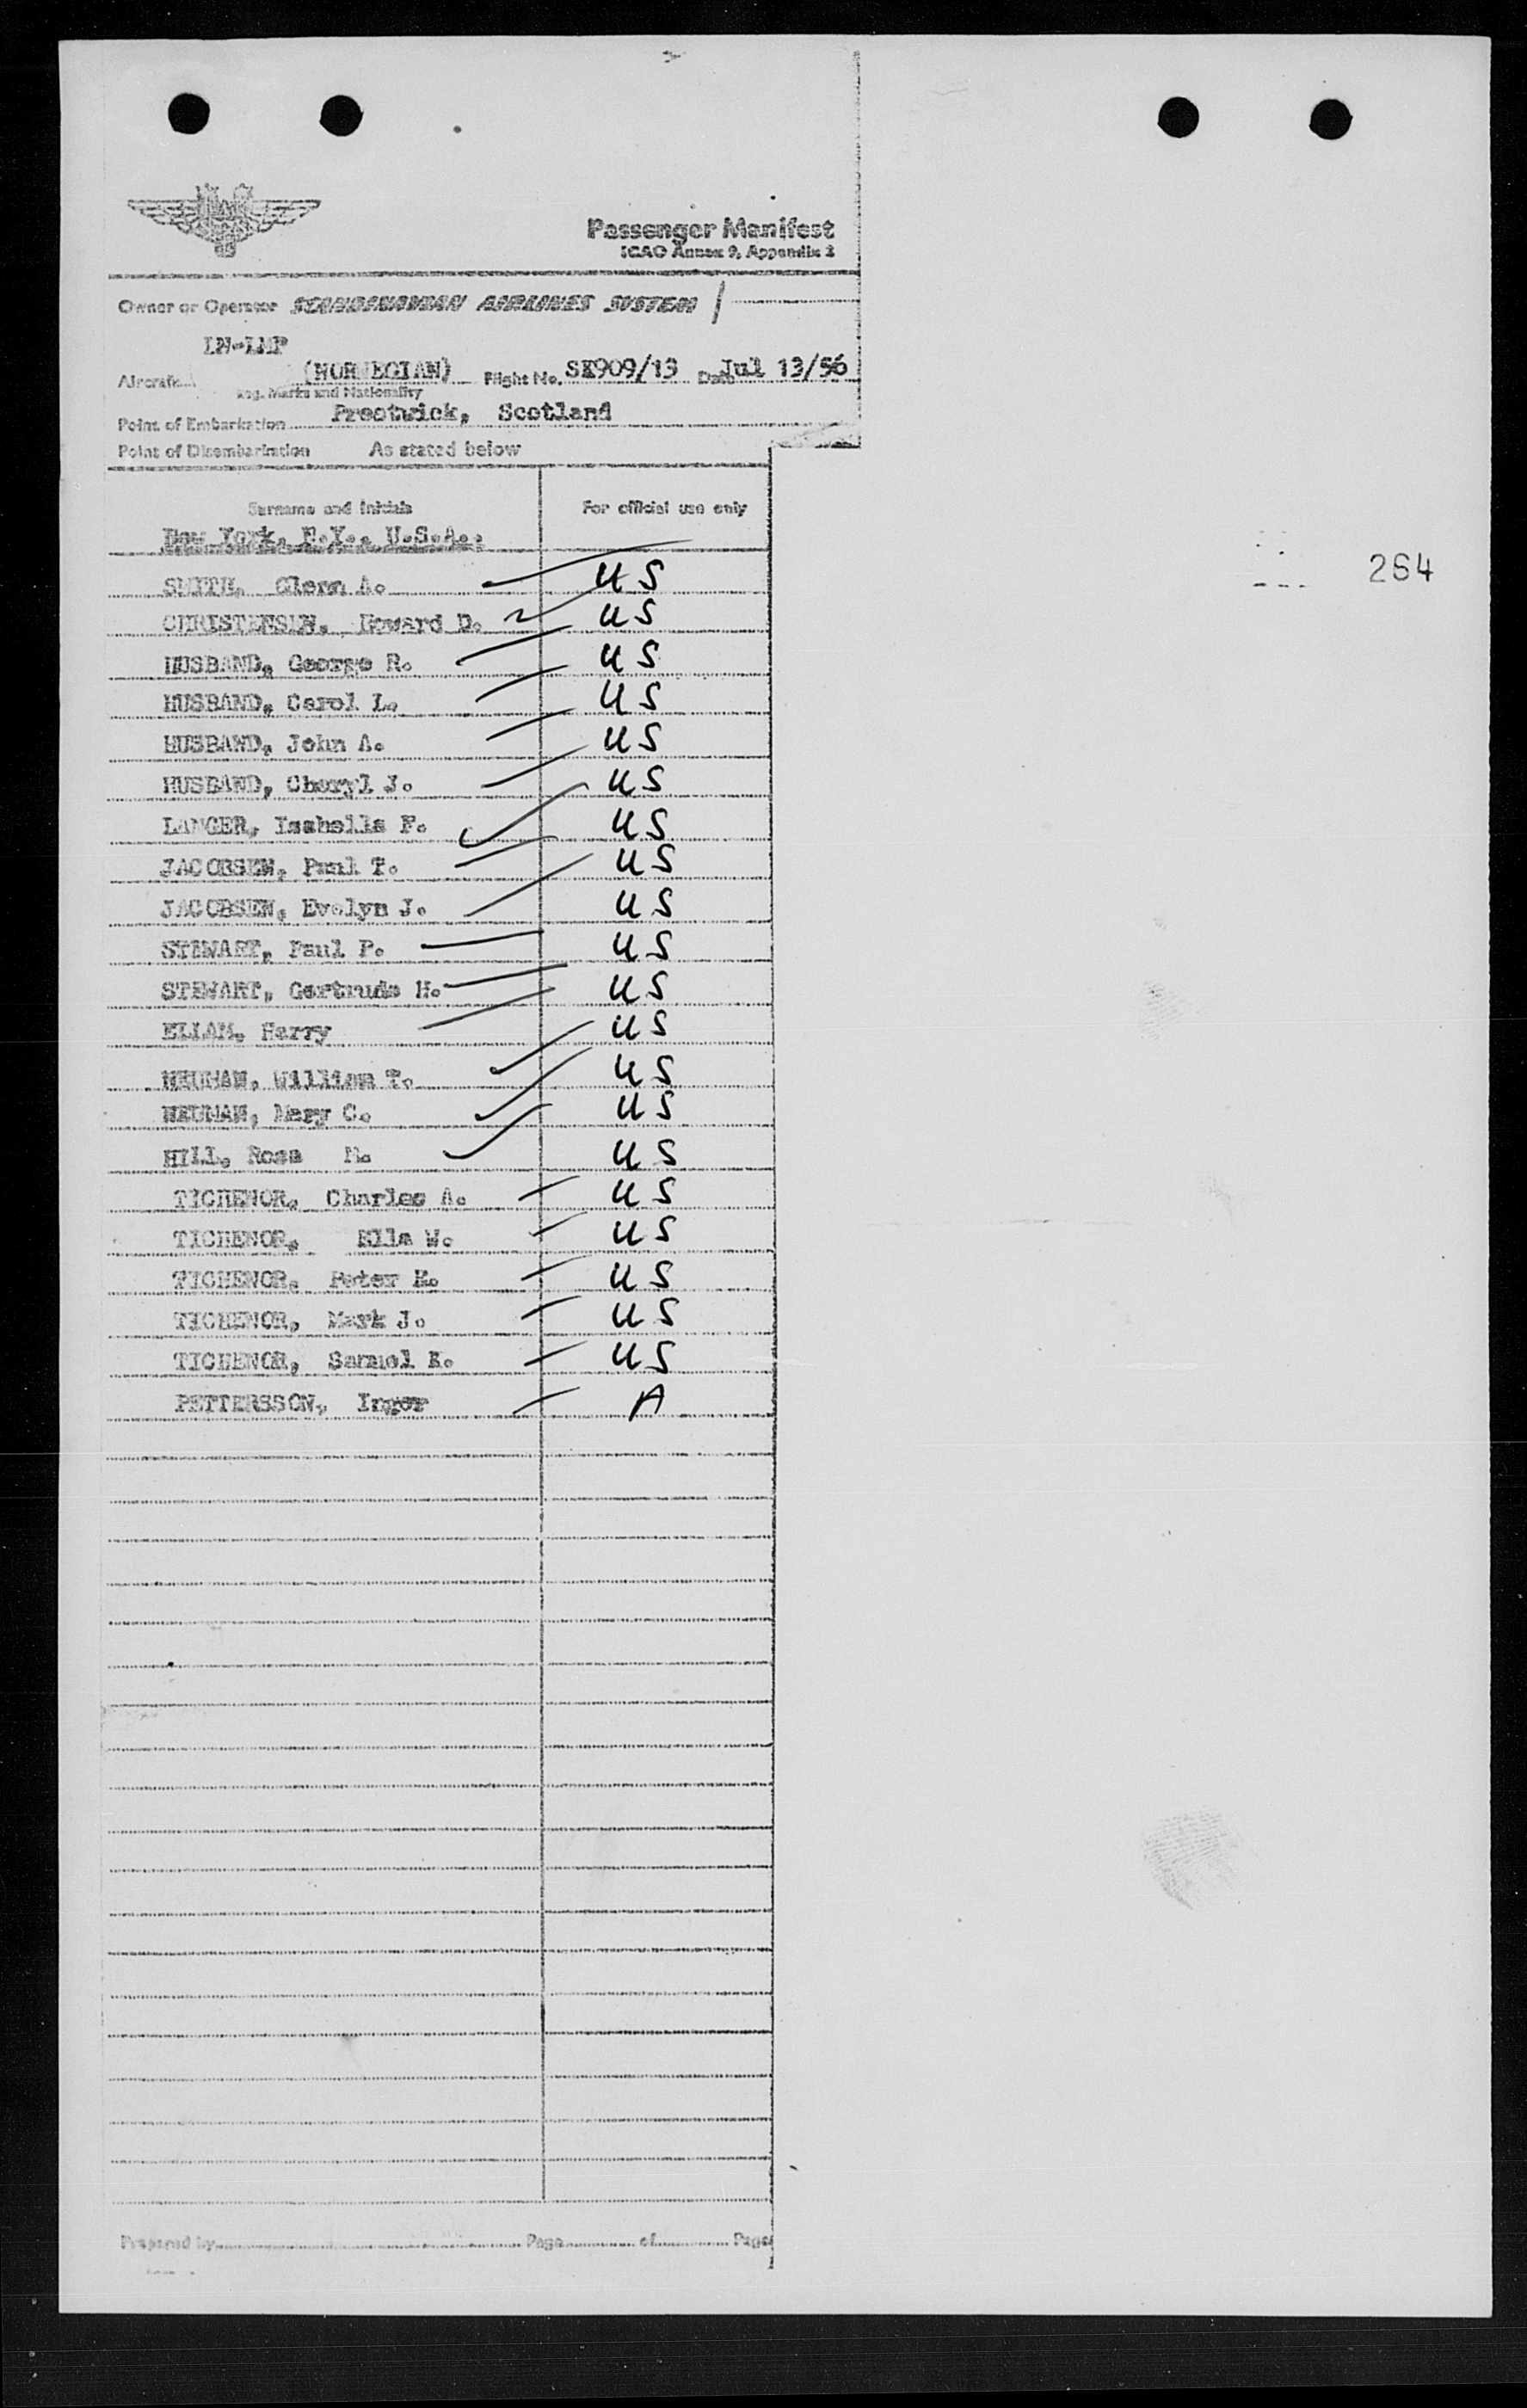 Passenger Manifest
ICAO Annex 9, Appendix 2
Owner or Operator SCANDINAVIAN AIRLINES SYSTEM
LN-LMP
Aircraft (NORWEGIAN) Flight No. SK909/13 Date Jul 13/56
Reg. Marks and Nationality
Point of Embarkation Prestwick, Scotland
Point of Disembarkation As stated below
Surname and Initials For official use only
New York, N.Y., U.S.A.:
264
SMITH, Glenn A. US
CHRISTENSEN, Howard D. US
HUSBAND, George R. US
HUSBAND, Carol L. US
HUSBAND, John A. US
HUSBAND, Cheryl J. US
LANGER, Isabella F. US
JACOBSEN, Paul T. US
JACOBSEN, Evelyn J. US
STEWART, Paul P. US
STEWART, Gertrude H. US
ELIAM, Harry US
NEUMAN, William T. US
NEUMAN, Mary C. US
HILL, Rosa M. US
TICHENOR, Charles A. US
TICHENOR, Ella W. US
TICHENOR, Peter R. US
TICHENOR, Mark J. US
TICHENOR, Samuel K. US
PETTERSSON, Inger A
Prepared by Page of Pages